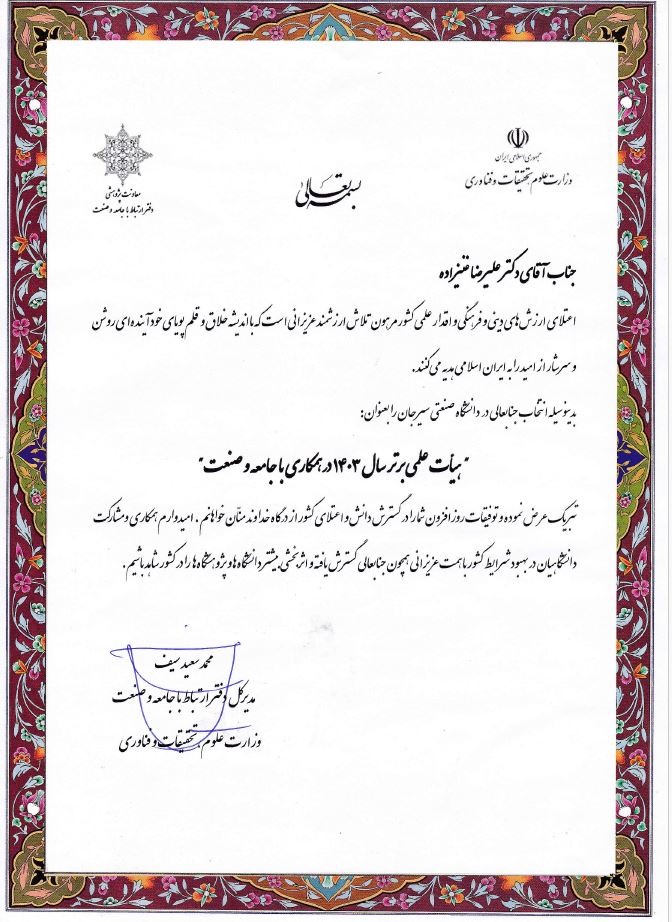 جمهوری اسلامی ایران
وزارت علوم، تحقیقات و فناوری
بسمه تعالی
معاونت پژوهشی
دفتر ارتباط با جامعه و صنعت
جناب آقای دکتر علیرضا غنیزاده
اعتلای ارزش های دینی و فرهنگی و اقتدار علمی کشور مرهون تلاش ارزشمند عزیزانی است که با اندیشه خلاق و قلم پویای خود آینده ای روشن
و سرشار از امید را به ایران اسلامی هدیه می کنند.
بدینوسیله انتخاب جنابعالی در دانشگاه صنعتی سیرجان را بعنوان:
"هیأت علمی برتر سال ۱۴۰۳ در همکاری با جامعه و صنعت"
تبریک عرض نموده و توفیقات روز افزون شما را در گسترش دانش و اعتلای کشور از درگاه خداوند منّان خواهانم. امیدوارم همکاری و مشارکت
دانشگاهیان در بهبود شرایط کشور با همت عزیزانی همچون جنابعالی گسترش یافته و اثربخشی بیشتر دانشگاه ها و پژوهشگاه ها را در کشور شاهد باشیم.
محمد سعید سیف
مدیرکل دفتر ارتباط با جامعه و صنعت
وزارت علوم، تحقیقات و فناوری